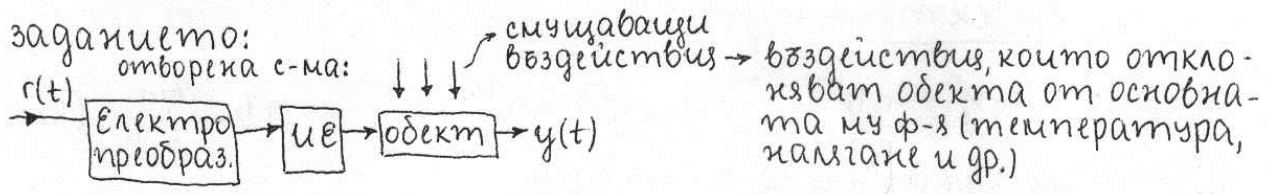 заданието:
отворена с-ма:
смущаващи
въздействия → въздействия, които откло-
няват обекта от основна-
та му ф-я (температура,
налягане и др.)
r(t)
Електро
преобраз.
ИЕ
обект
y(t)